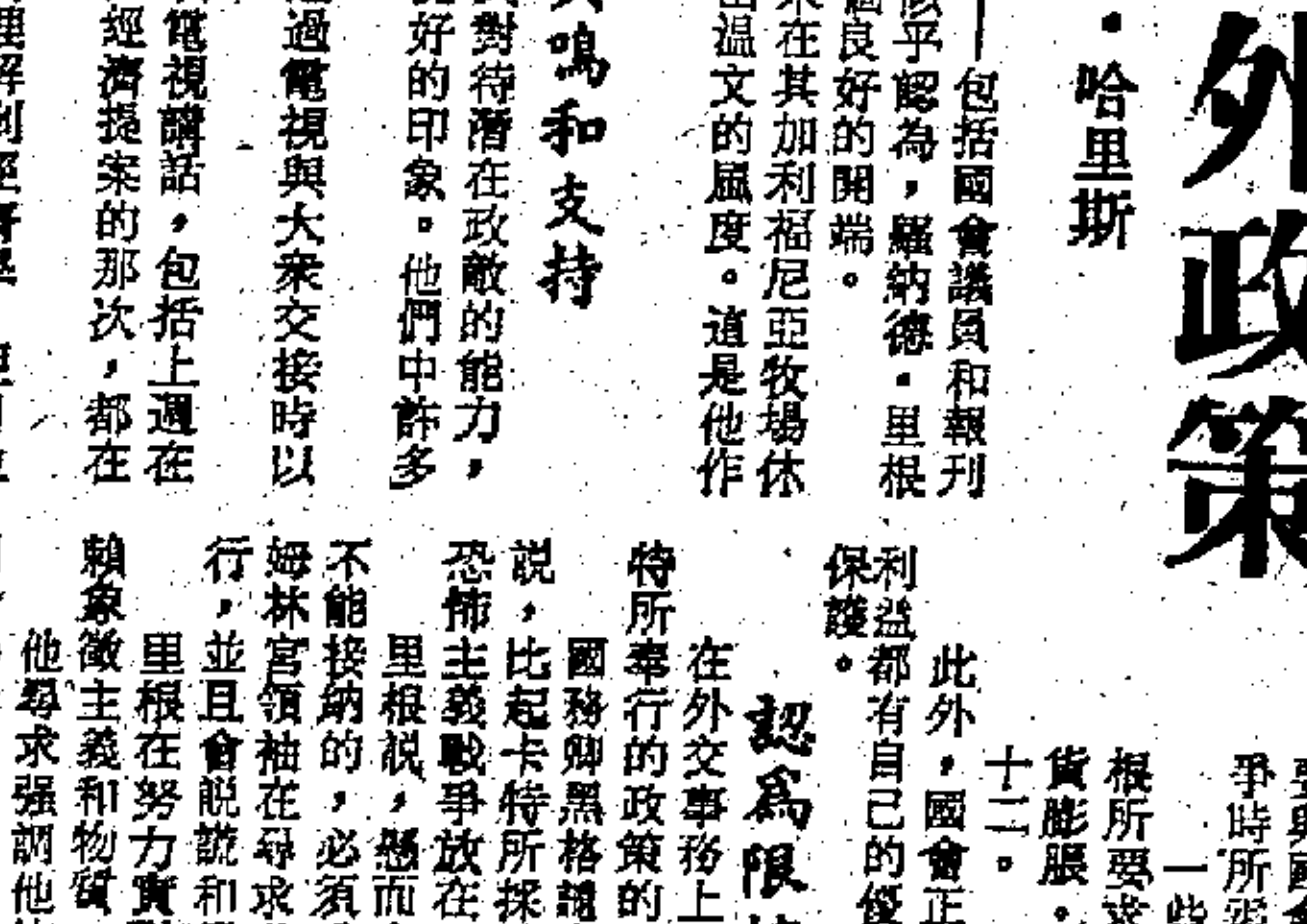 外政策
・哈里斯
──包括國會議員和報刊
似乎認為，羅納德・里根
個良好的開端。
來在其加利福尼亞牧場休
出温文的風度。這是他作
鳴和支持
對待潛在政敵的能力，
好的印象。他們中許多
過電視與大衆交接時以
電視講話，包括上週在
經濟提案的那次，都在
理解到經濟
爭時所
一些
根所要求
貨膨脹。
十二。
此外，國會正
利益都有自己的優
保護。
認爲限
在外交事務上
特所奉行的政策的
國務卿黑格譴
説，比起卡特所採
恐怖主義戰爭放在
里根説，懸而
不能接納的，必須
姆林宮領袖在尋求
行，並且會説謊和
里根在努力實
賴象徵主義和物質
他尋求强調他